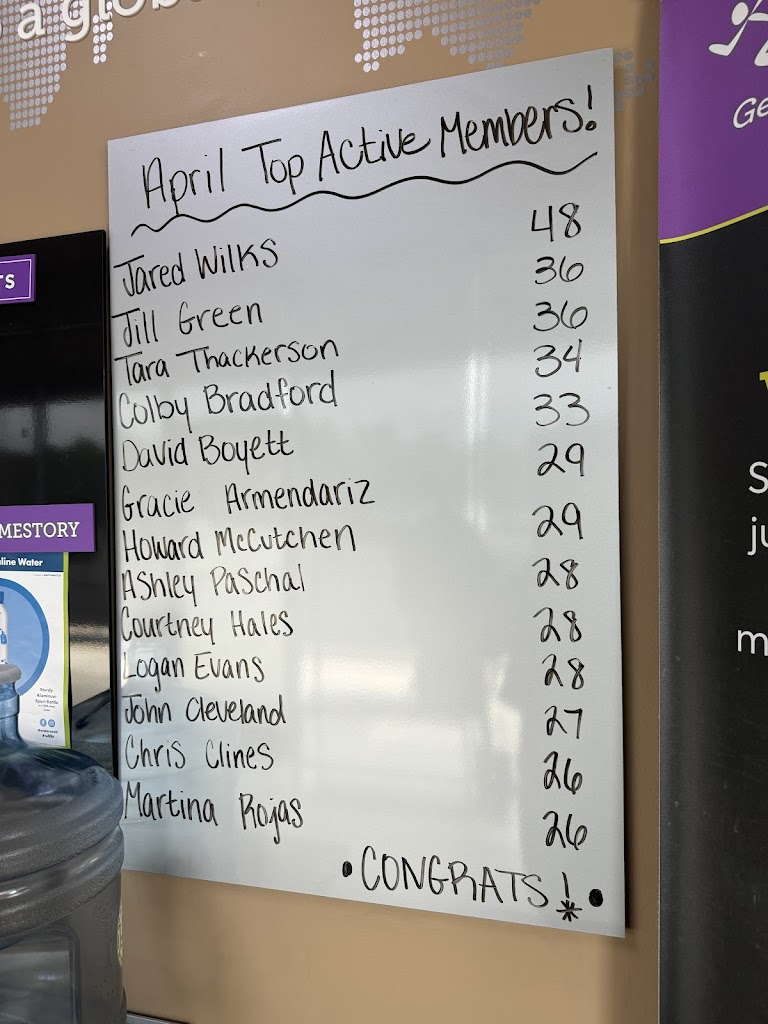 a glob
April Top Active Members!
Jared Wilks 48
Jill Green 36
Tara Thackerson 36
Colby Bradford 34
David Boyett 33
Gracie Armendariz 29
Howard McCutchen 29
Ashley Paschal 28
Courtney Hales 28
Logan Evans 28
John Cleveland 27
Chris Clines 26
Martina Rojas 26
•CONGRATS!•
TS
MESTORY
line Water
Sturdy
Aluminum
Sport Bottle
Ge
S
ju
m